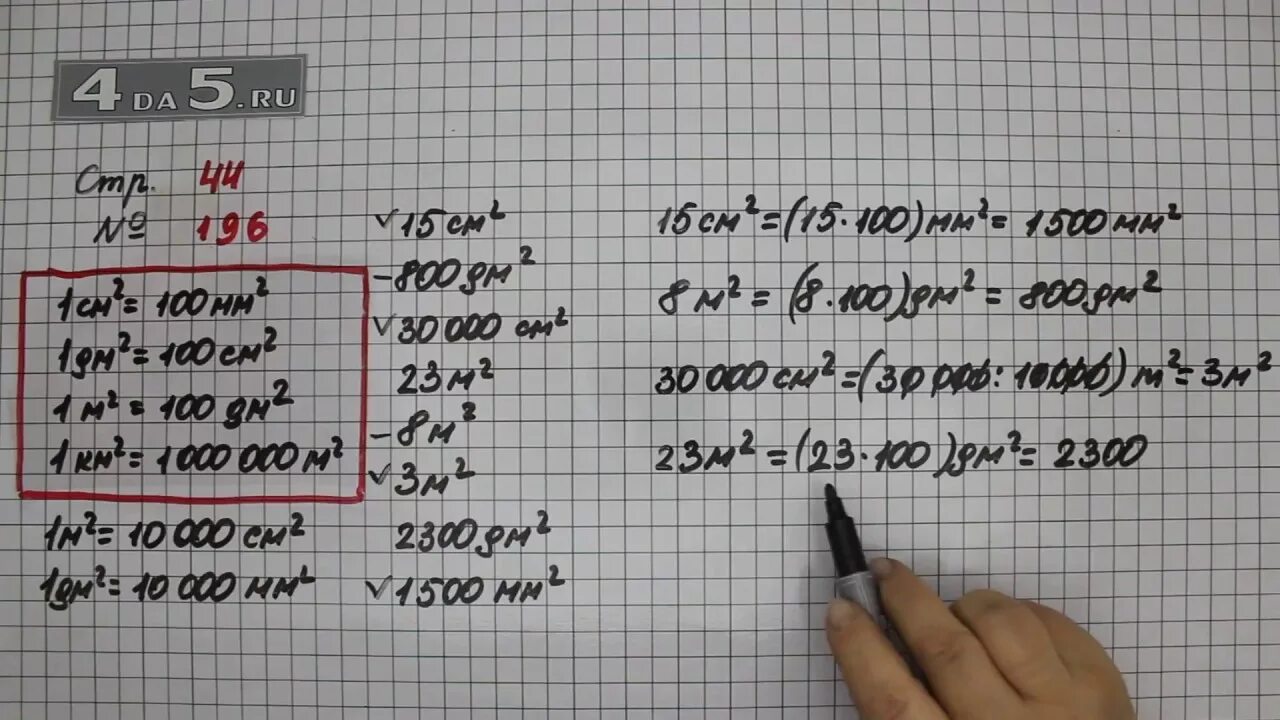 4DA5.RU
Стр. 44
№ 196
1 см² = 100 мм²
1 дм² = 100 см²
1 м² = 100 дм²
1 км² = 1 000 000 м²
1 м² = 10 000 см²
1 дм² = 10 000 мм²
✓ 15 см²
– 800 дм²
✓ 30 000 см²
23 м²
– 8 м²
✓ 3 м²
2300 дм²
✓ 1500 мм²
15 см² = (15 · 100) мм² = 1500 мм²
8 м² = (8 · 100) дм² = 800 дм²
30 000 см² = (30 000 : 10 000) м² = 3 м²
23 м² = (23 · 100) дм² = 2300